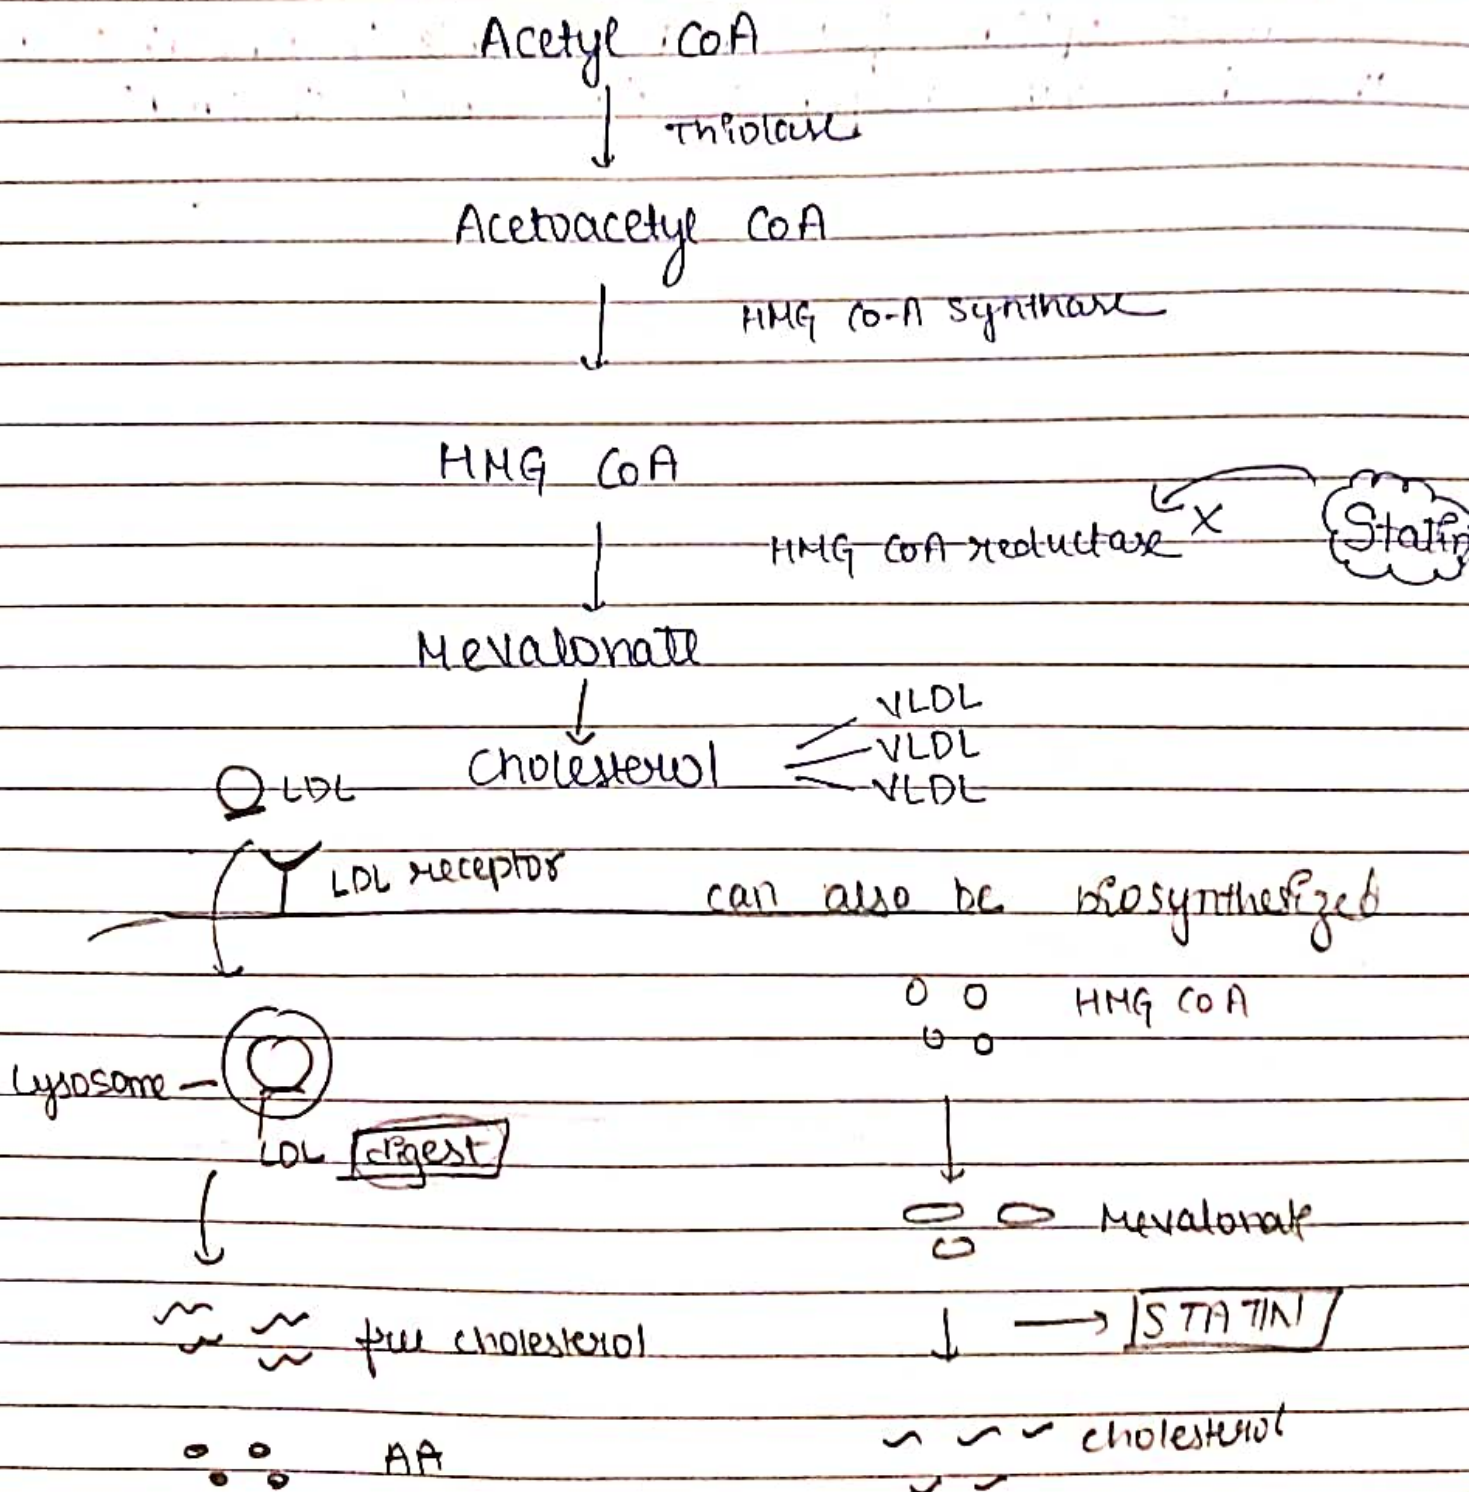 Acetyl CoA
Thiolase
Acetoacetyl CoA
HMG Co-A synthase
HMG CoA
HMG CoA reductase X Statin
Mevalonate
VLDL
Cholesterol VLDL
LDL VLDL
LDL receptor can also be biosynthesized
HMG CoA
Lysosome
LDL digest
Mevalonate
STATIN
free cholesterol
cholesterol
AA